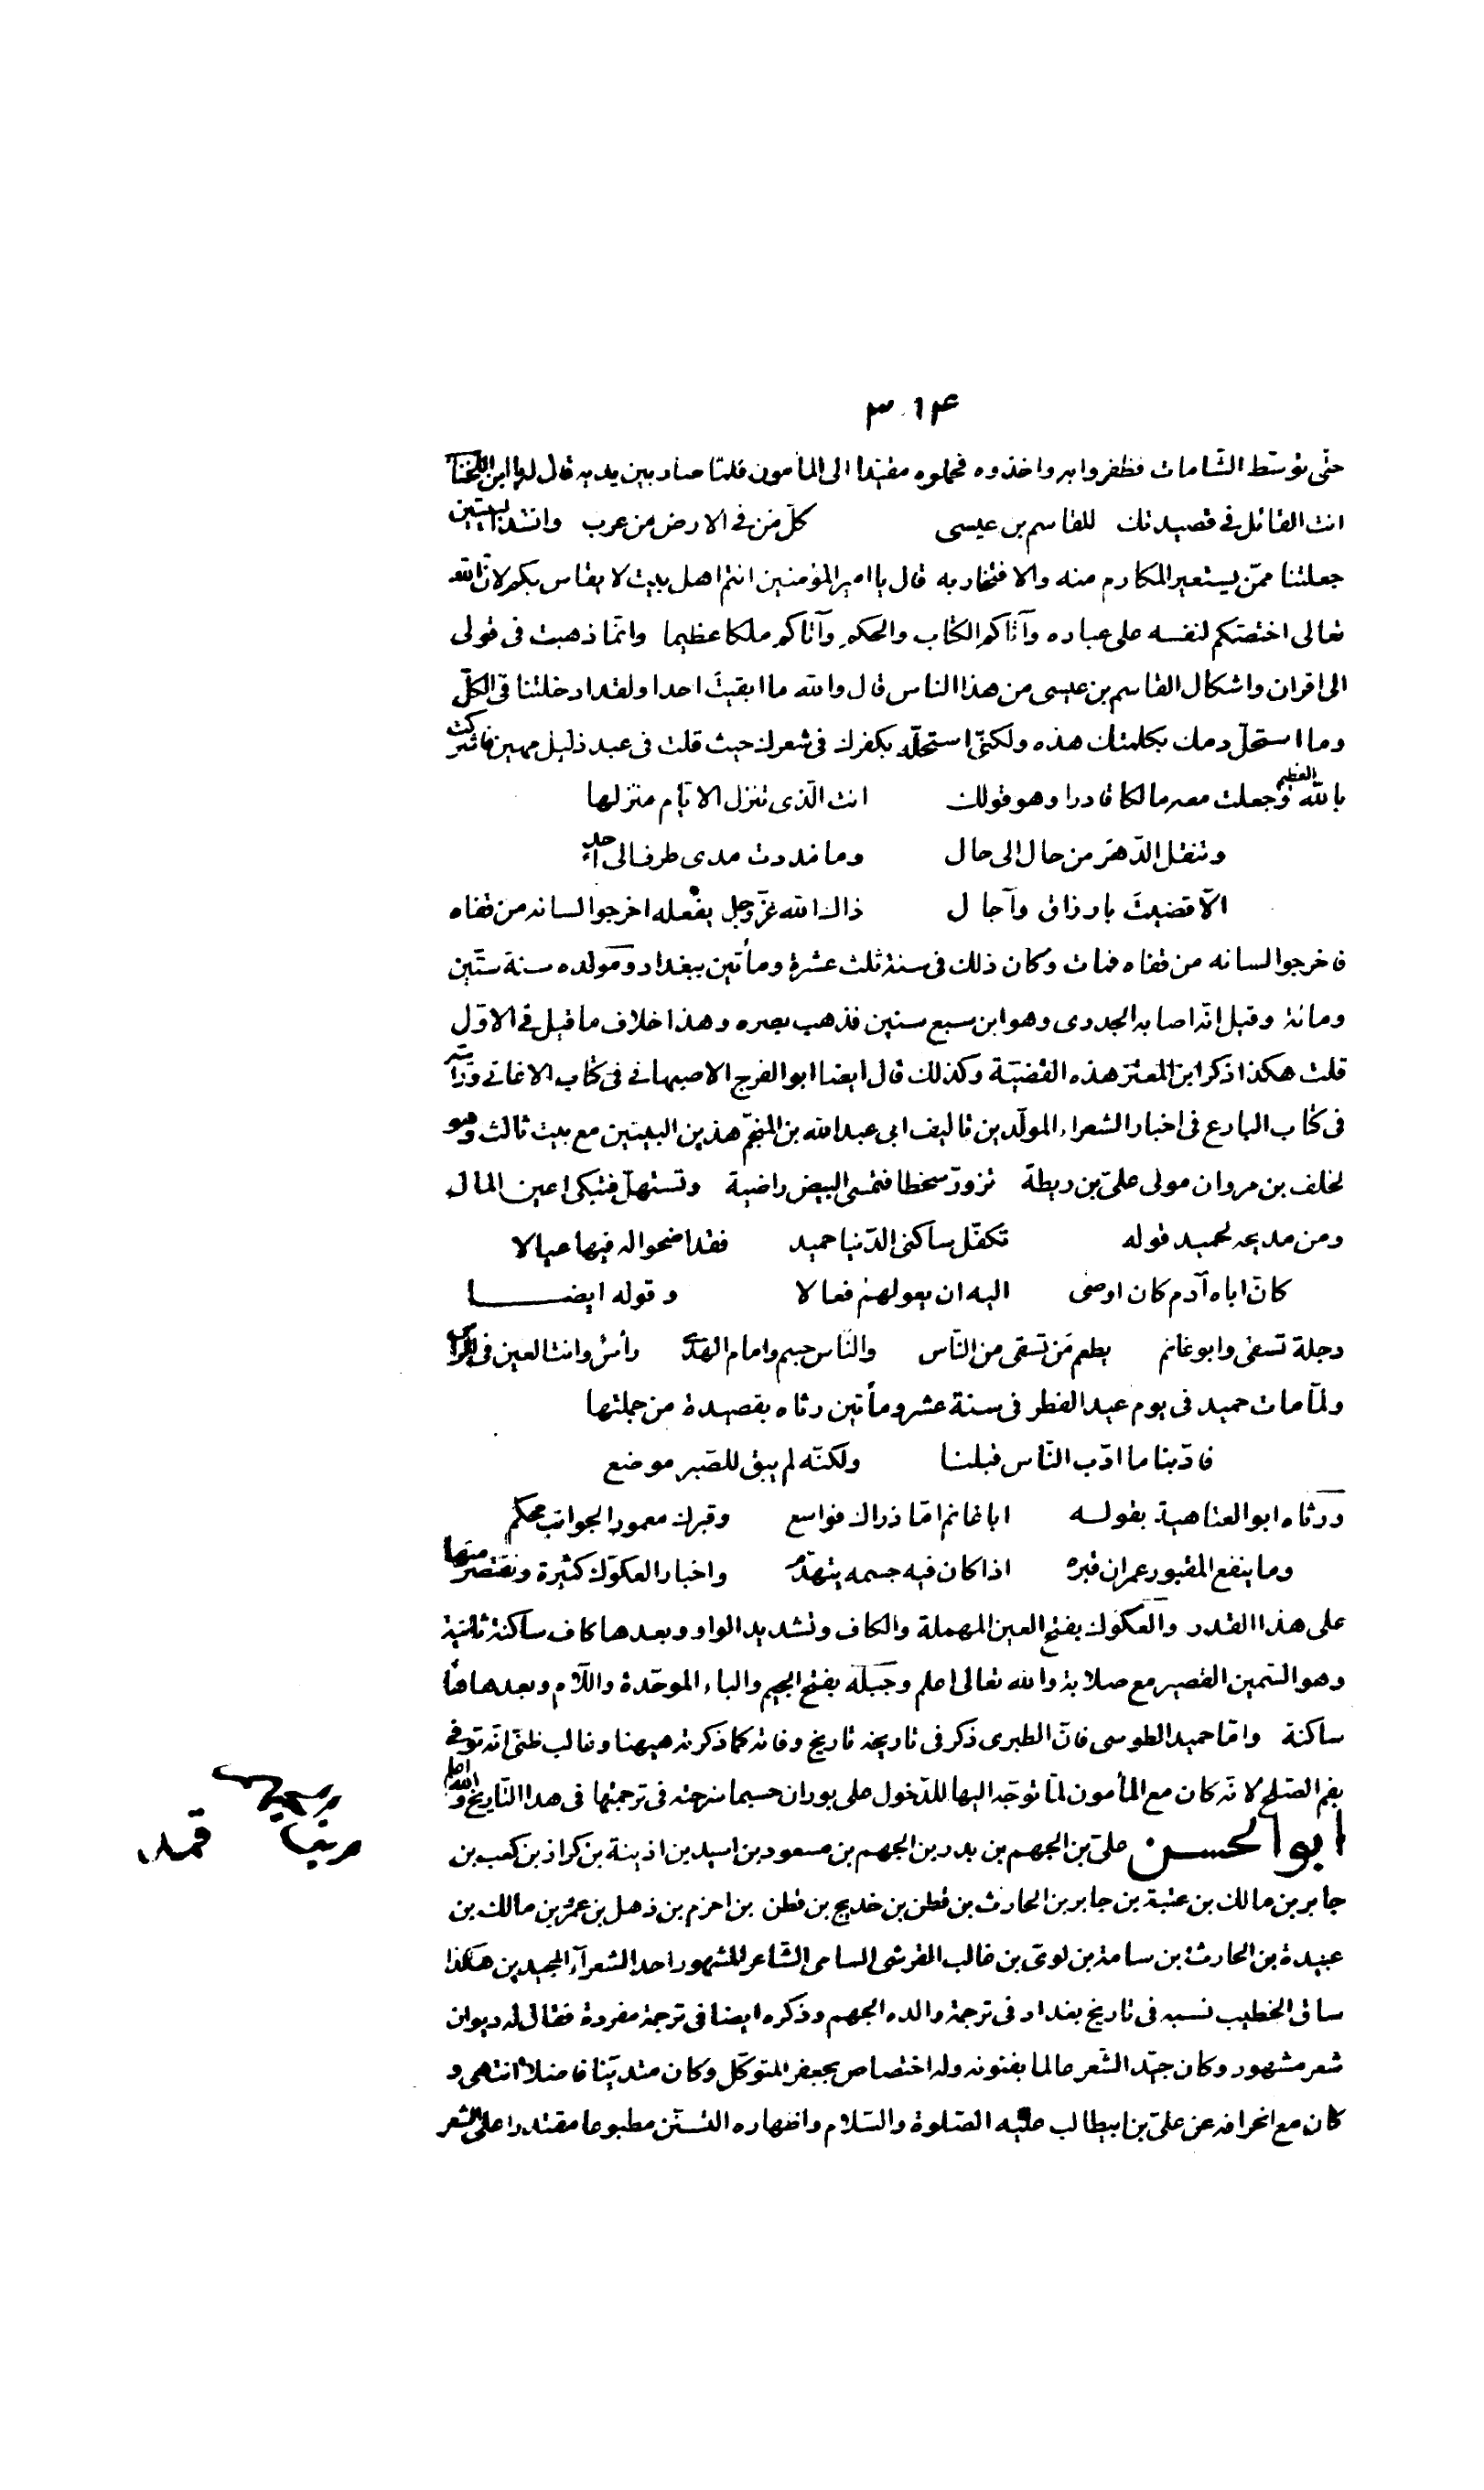 ٣١۴
حتّى توسّط الشّامات فظفروا به واخذوه فحملوه مقيّدا الى المأمون فلمّا صار بين يديه قال له يا ابن اللخناء
انت القائل فى قصيدتك للقاسم بن عيسى كلّ من فى الارض من عرب وانشد البيتين
جعلتنا ممّن يستعير المكارم منه والافتخار به قال يا امير المؤمنين انتم اهل بيت لا يقاس بكم لانّ الله
تعالى اختصّكم لنفسه على عباده وآتاكم الكتاب والحكم وآتاكم ملكا عظيما وانّما ذهبت فى قولى
الى اقران واشكال القاسم بن عيسى من هذا الناس قال والله ما ابقيت احدا ولقد ادخلتنا فى الكلّ
وما استحلّ دمك بكلمتك هذه ولكنّى استحلّه بكفرك فى شعرك حيث قلت فى عبد ذليل مهين فاشركت
بالله العظيم وجعلت معه مالكا قادرا وهو قولك انت الّذى تنزل الايّام منزلها
وتنقل الدّهر من حال الى حال وما مددت مدى طرف الى احد
الّا قضيت بارزاق وآجال ذاك الله عزّ وجل يفعله اخرجوا لسانه من قفاه
فاخرجوا لسانه من قفاه فمات وكان ذلك فى سنة ثلث عشرة ومأتين ببغداد ومولده سنة ستّين
ومائة وقيل انّه اصابه الجدرى وهو ابن سبع سنين فذهب بصره وهذا خلاف ما قيل فى الاوّل
قلت هكذا ذكر ابن المعتز هذه القضيّة وكذلك قال ايضا ابو الفرج الاصبهانى فى كتاب الاغانى ورأيت
فى كتاب البارع فى اخبار الشعراء المولّدين تاليف ابى عبد الله بن المنجّم هذين البيتين مع بيت ثالث وهو
لخلف بن مروان مولى علىّ بن ريطة تزورّ سخطا فتمسى البيض راضية وتستهلّ فتبكى اعين المال
ومن مديحه لحميد قوله تكفّل ساكنى الدّنيا حميد فقد اضحوا له فيها عيالا
كانّ اباه آدم كان اوصى اليه ان يعولهم فعالا وقوله ايضا
دجلة تسقى وابو غانم يطعم من تسقى من النّاس والنّاس جسم وامام الهدى رأس وانت العين فى الرأس
ولمّا مات حميد فى يوم عيد الفطر فى سنة عشر ومأتين رثاه بقصيدة من جملتها
فادّبنا ما ادّب النّاس قبلنا ولكنّه لم يبق للصّبر موضع
ورثاه ابو العتاهية بقوله ابا غانم امّا ذراك فواسع وقبرك معمور الجوانب محكم
وما ينفع المقبور عمران قبره اذا كان فيه جسمه يتهدّم واخبار العكوّك كثيرة ونقتصر منها
على هذا القدر والعكوّك بفتح العين المهملة والكاف وتشديد الواو وبعدها كاف ساكنة ثانية
وهو السّمين القصير مع صلابة والله تعالى اعلم وجبلة بفتح الجيم والباء الموحّدة واللّام وبعدها هاء
ساكنة وامّا حميد الطوسى فانّ الطبرى ذكر فى تاريخه تاريخ وفاته كما ذكرته هيهنا وغالب ظنّى انّه توفى
بفم الصّلح لانّه كان مع المأمون لمّا توجّه اليها للدّخول على بوران حسبما شرحته فى ترجمتها فى هذا التّاريخ والله اعلم
ابو الحسن علىّ بن الجهم بن بدر بن الجهم بن مسعود بن اسيد بن اذينة بن كراز بن كعب بن
جابر بن مالك بن عتبة بن جابر بن الحارث بن قطن بن خديج بن قطن بن احزم بن ذهل بن عمرو بن مالك بن
عبيدة بن الحارث بن سامة بن لوىّ بن غالب القرشى السامى الشّاعر المشهور احد الشعرآء المجيدين هكذا
ساق الخطيب نسبه فى تاريخ بغداد فى ترجمة والده الجهم وذكره ايضا فى ترجمة مفردة فقال له ديوان
شعر مشهور وكان جيّد الشّعر عالما بفنونه وله اختصاص بجعفر المتوكّل وكان متديّنا فاضلا انتهى و
كان مع انحرافه عن علىّ بن ابيطالب عليه الصّلوة والسّلام واظهاره التّسنّن مطبوعا مقتدرا على الشعر